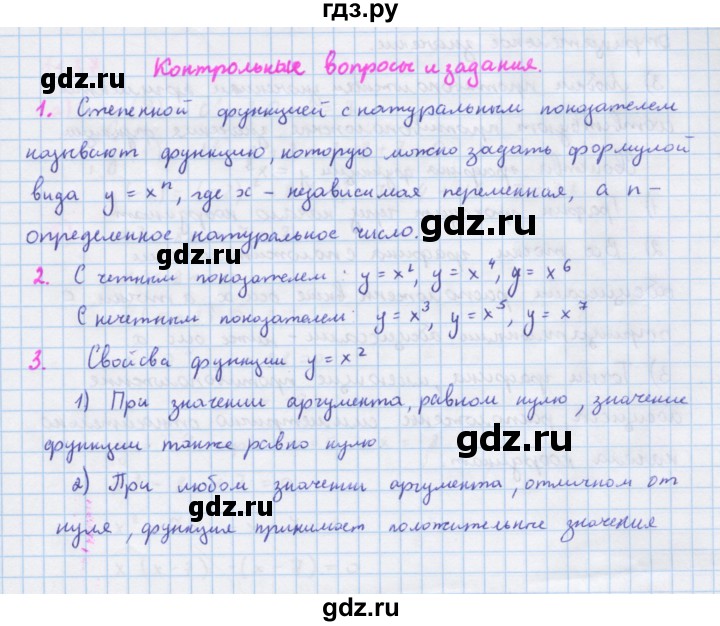 гдз.ру
Контрольные вопросы и задания.
1. Степенной функцией с натуральным показателем
называют функцию, которую можно задать формулой
вида y = xⁿ, где x – независимая переменная, а n –
определенное натуральное число.
2. С четным показателем: y = x², y = x⁴, y = x⁶
С нечетным показателем: y = x³, y = x⁵, y = x⁷
3. Свойсва функции y = x²
1) При значении аргумента, равном нулю, значение
функции также равно нулю
2) При любом значении аргумента, отличном от
нуля, функция принимает положительные значения
gdz.ru
gdz.ru
gdz.ru
gdz.ru
gdz.ru
gdz.ru
gdz.ru
gdz.ru